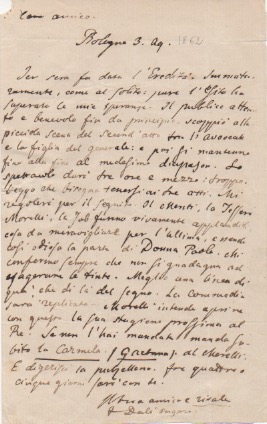 Caro amico.
Bologna 3. Ag. 1862
Ier sera fu data l'Eredità. Immatu-
ramente, come al solito: pure l'esito ha
superato le mie speranze. Il pubblico atten-
to e benevolo fin da principio, scoppiò alla
piccola scena del second'atto tra l'Avvocato
e la figlia del generale: e poi si mantenne
fino alla fine al medesimo diapason. Lo
spettacolo durò tre ore e mezzo: troppo.
Veggo che bisogna tenersi ai tre atti. Mi
regolerò per il seguito. Il Monti, la
Morelli, la Job furono vivamente applauditi
cosa da maravigliare per l'ultima, essendo
così odiosa la parte di Donna Paola. Mi
confermo sempre che non si guadagna ad
esagerare le tinte. Meglio una linea di
qua che di là del segno. La commedia
sarà replicata - Morelli intende aprire
con questa la sua stagione prossima al
Re. Se non l'hai mandata manda su-
bito la Carmela (Gaetana) al Morelli.
E digerisci la pulzellona. fra quattro o
cinque giorni sarò con te.
Il tuo amico e rivale
Dall'Ongaro